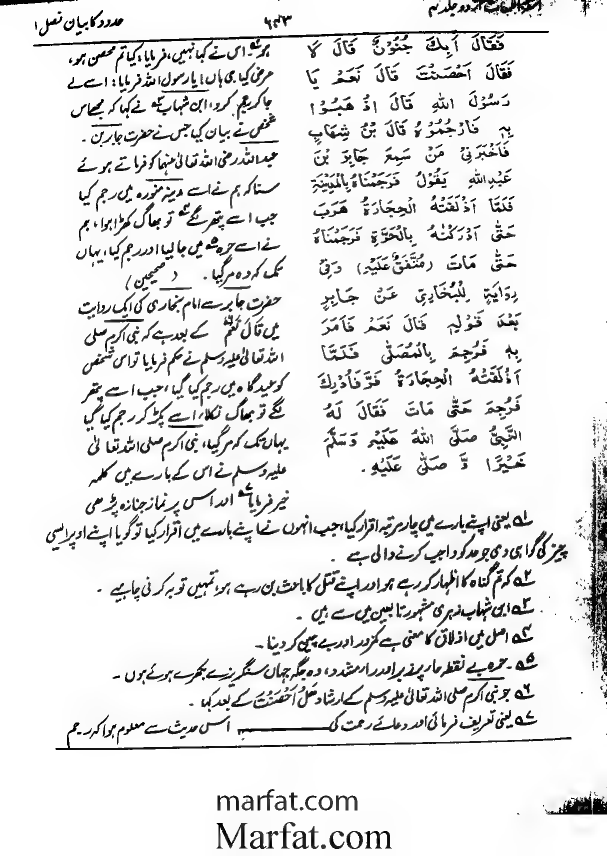 حدود کا بیان فصل ۱
۶۴۳
فَقَالَ أَبِكَ جُنُوْنٌ قَالَ لَا
فَقَالَ اَحْصَنْتَ قَالَ نَعَمْ يَا
رَسُوْلَ اللهِ قَالَ اذْهَبُوْا
بِهٖ فَارْجُمُوْهُ قَالَ بْنُ شِهَابٍ
فَاَخْبَرَنِيْ مَنْ سَمِعَ جَابِرَ بْنَ
عَبْدِاللهِ يَقُوْلُ فَرَجَمْنَاهُ بِالْمَدِيْنَةِ
فَلَمَّا اَذْلَقَتْهُ الْحِجَارَةُ هَرَبَ
حَتّٰى اَدْرَكْتُهُ بِالْحَرَّةِ فَرَجَمْنَاهُ
حَتّٰى مَاتَ (مُتَّفَقٌ عَلَيْهِ) وَفِيْ
رِوَايَةٍ لِّلْبُخَارِيِّ عَنْ جَابِرٍ
بَعْدَ قَوْلِهٖ قَالَ نَعَمْ فَاَمَرَ
بِهٖ فَرُجِمَ بِالْمُصَلّٰى فَلَمَّا
اَذْلَقَتْهُ الْحِجَارَةُ فَرَّ فَاُدْرِكَ
فَرُجِمَ حَتّٰى مَاتَ فَقَالَ لَهُ
النَّبِيُّ صَلَّى اللهُ عَلَيْهِ وَسَلَّمَ
خَيْرًا وَّ صَلّٰى عَلَيْهِ.
ہو؟ اس نے کہا نہیں، فرمایا: کیا تم محصن ہو،
عرض کیا جی ہاں! یا رسول اللہ فرمایا: اسے لے
جا کر رجم کر دو، ابن شہاب نے کہا کہ مجھے اس
شخص نے بیان کیا جس نے حضرت جابر بن
عبداللہ رضی اللہ تعالیٰ عنہما کو فرماتے ہوئے
سنا کہ ہم نے اسے مدینہ منورہ میں رجم کیا
جب اسے پتھر لگے تو بھاگ کھڑا ہوا، ہم
نے اسے حرہ میں جا لیا اور رجم کیا، یہاں
تک کہ وہ مر گیا۔ (صحیحین)
حضرت جابر سے امام بخاری کی ایک روایت
میں قَالَ نَعَمْ کے بعد ہے کہ نبی اکرم صلی
اللہ تعالیٰ علیہ وسلم نے حکم فرمایا تو اس شخص
کو عیدگاہ میں رجم کیا گیا، جب اسے پتھر
لگے تو بھاگ نکلا، اسے پکڑ کر رجم کیا گیا
یہاں تک کہ مر گیا، نبی اکرم صلی اللہ تعالیٰ
علیہ وسلم نے اس کے بارے میں کلمہ
خیر فرمایا اور اس پر نماز جنازہ پڑھی
۱ یعنی اپنے بارے میں چار مرتبہ اقرار کیا، جب انہوں نے اپنے بارے میں اقرار کیا تو گویا اپنے اوپر ایسی
چیز کی گواہی دی جو حد کو واجب کرنے والی ہے۔
۲ کہ تم گناہ کا اظہار کر رہے ہو اور اپنے قتل کا باعث بن رہے ہو، تمہیں توبہ کرنی چاہیے۔
۳ ابن شہاب زہری مشہور تابعین میں سے ہیں۔
۴ اصل میں اذلاق کا معنی ہے کمزور اور بے چین کر دینا۔
۵ حرہ بے نقطہ حار پر زبر اور را مشدد، وہ جگہ جہاں سنگریزے بکھرے ہوئے ہوں۔
۶ جو نبی اکرم صلی اللہ تعالیٰ علیہ وسلم کے ارشاد هَلْ اَحْصَنْتَ کے بعد کہا۔
۷ یعنی تعریف فرمائی اور دعائے رحمت کی اس حدیث سے معلوم ہوا کہ رجم
marfat.com
Marfat.com